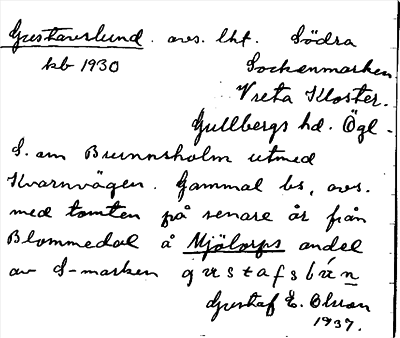 Gustavslund. avs. lht. Södra
kb 1930 Sockenmarken
Vreta Kloster.
Gullbergs hd. Ögl.
S. om Brunnsholm utmed
Kvarnvägen. Gammal bs, avs.
med tomten på senare år från
Blommedal å Mjölorps andel
av S-marken gustafsbún
Gustaf E. Olson
1937.